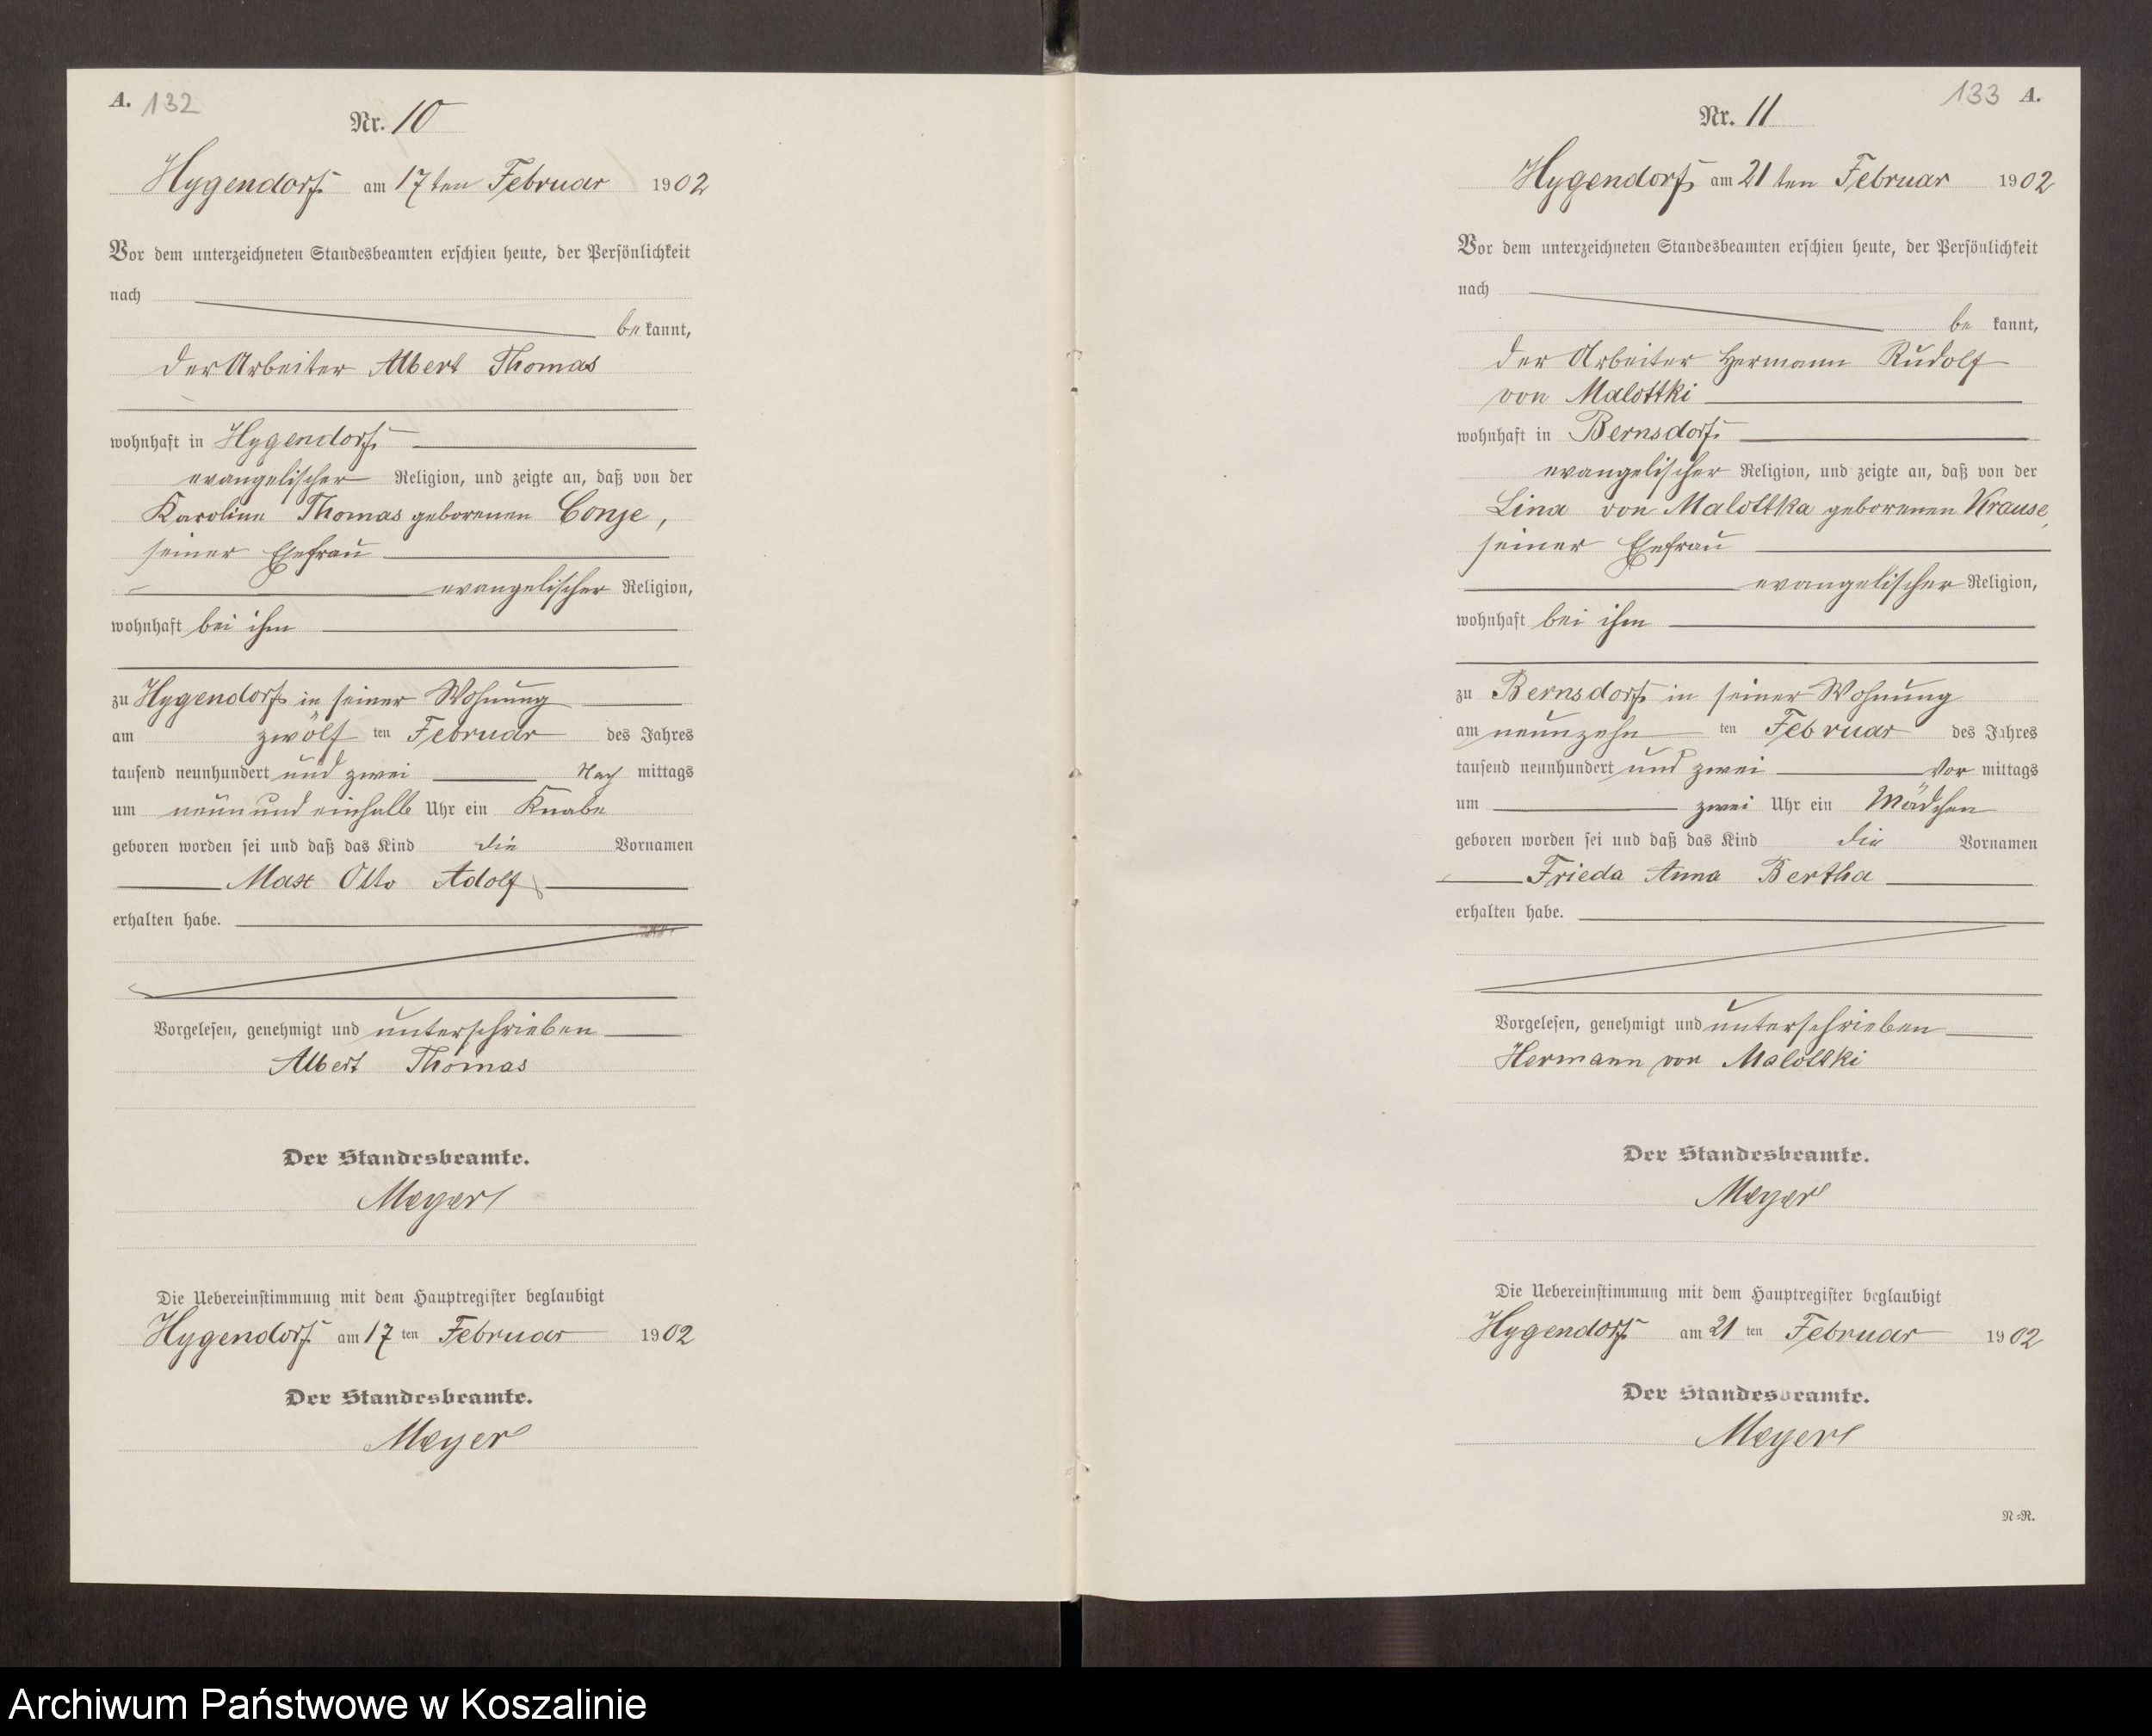 A. 132
Nr. 10
Hygendorf am 17ten Februar 1902
Vor dem unterzeichneten Standesbeamten erschien heute, der Persönlichkeit
nach
bekannt,
der Arbeiter Albert Thomas
wohnhaft in Hygendorf
evangelischer Religion, und zeigte an, daß von der
Karoline Thomas geborenen Conje,
seiner Ehefrau
evangelischer Religion,
wohnhaft bei ihm
zu Hygendorf in seiner Wohnung
am zwölf ten Februar des Jahres
tausend neunhundert und zwei Nach mittags
um neun und einhalb Uhr ein Knabe
geboren worden sei und daß das Kind die Vornamen
Max Otto Adolf
erhalten habe.
Vorgelesen, genehmigt und unterschrieben
Albert Thomas
Der Standesbeamte.
Meyer
Die Uebereinstimmung mit dem Hauptregister beglaubigt
Hygendorf am 17 ten Februar 1902
Der Standesbeamte.
Meyer
133 A.
Nr. 11
Hygendorf am 21 ten Februar 1902
Vor dem unterzeichneten Standesbeamten erschien heute, der Persönlichkeit
nach
be kannt,
der Arbeiter Hermann Rudolf
von Malottki
wohnhaft in Bernsdorf
evangelischer Religion, und zeigte an, daß von der
Lina von Malottka geborenen Krause,
seiner Ehefrau
evangelischer Religion,
wohnhaft bei ihm
zu Bernsdorf in seiner Wohnung
am neunzehn ten Februar des Jahres
tausend neunhundert und zwei Vor mittags
um zwei Uhr ein Mädchen
geboren worden sei und daß das Kind die Vornamen
Frieda Anna Bertha
erhalten habe.
Vorgelesen, genehmigt und unterschrieben
Hermann von Malottki
Der Standesbeamte.
Meyer
Die Uebereinstimmung mit dem Hauptregister beglaubigt
Hygendorf am 21 ten Februar 1902
Der Standesbeamte.
Meyer
N=R.
Archiwum Państwowe w Koszalinie